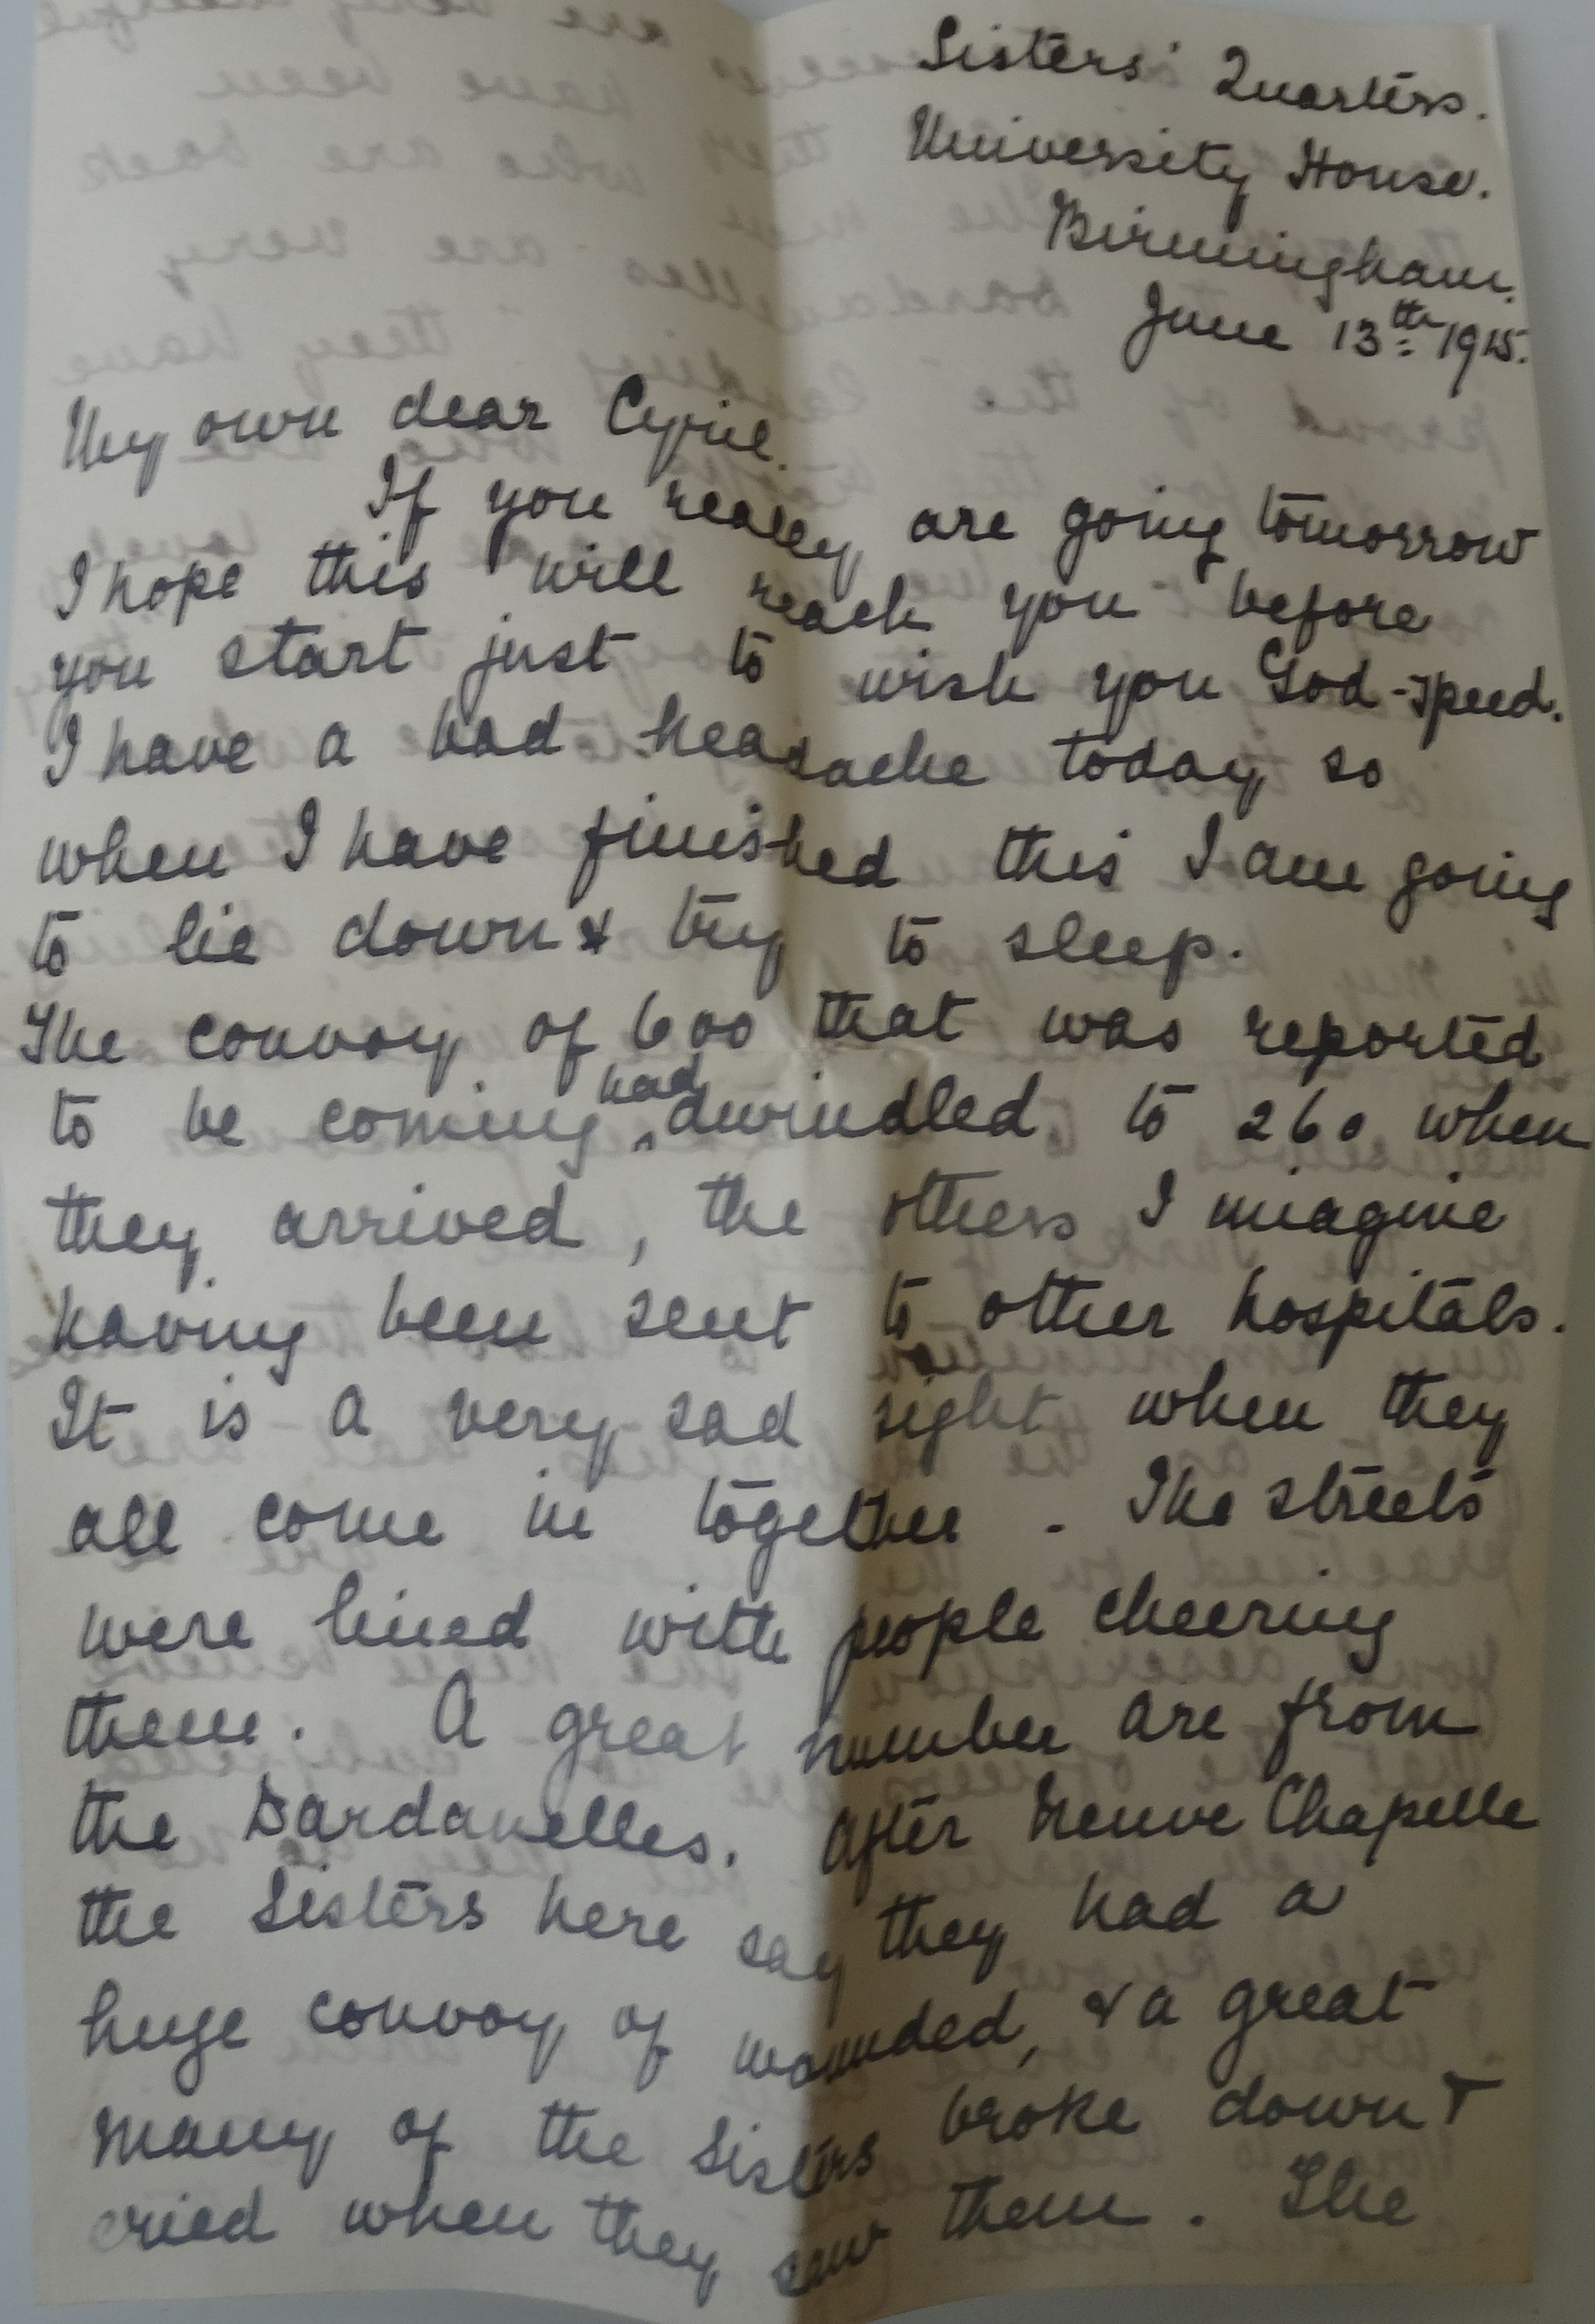 Sisters' Quarters.
University House.
Birmingham.
June 13th 1915.
My own dear Cyril.
If you really are going tomorrow
I hope this will reach you before
you start just to wish you God-speed.
I have a bad headache today so
when I have finished this I am going
to lie down & try to sleep.
The convoy of 600 that was reported
to be coming had dwindled to 260 when
they arrived, the others I imagine
having been sent to other hospitals.
It is a very sad sight when they
all come in together. The streets
were lined with people cheering
them. A great number are from
the Dardanelles. After Neuve Chapelle
the Sisters here say they had a
huge convoy of wounded, & a great
many of the Sisters broke down &
cried when they saw them. The